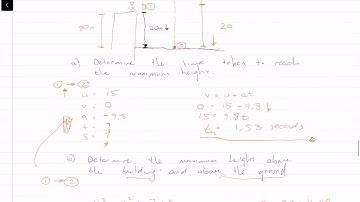 ①
20m
20m
20
②
a) Determine the time taken to reach
the maximum height.
① → ②
u = 15
v = u + at
v = 0
0 = 15 - 9,8t
a = -9,8
15 = 9,8t
t = ?
t₁₂ = 1,53 seconds
s = ?
b) Determine the maximum height above
the building and above the ground
① → ②